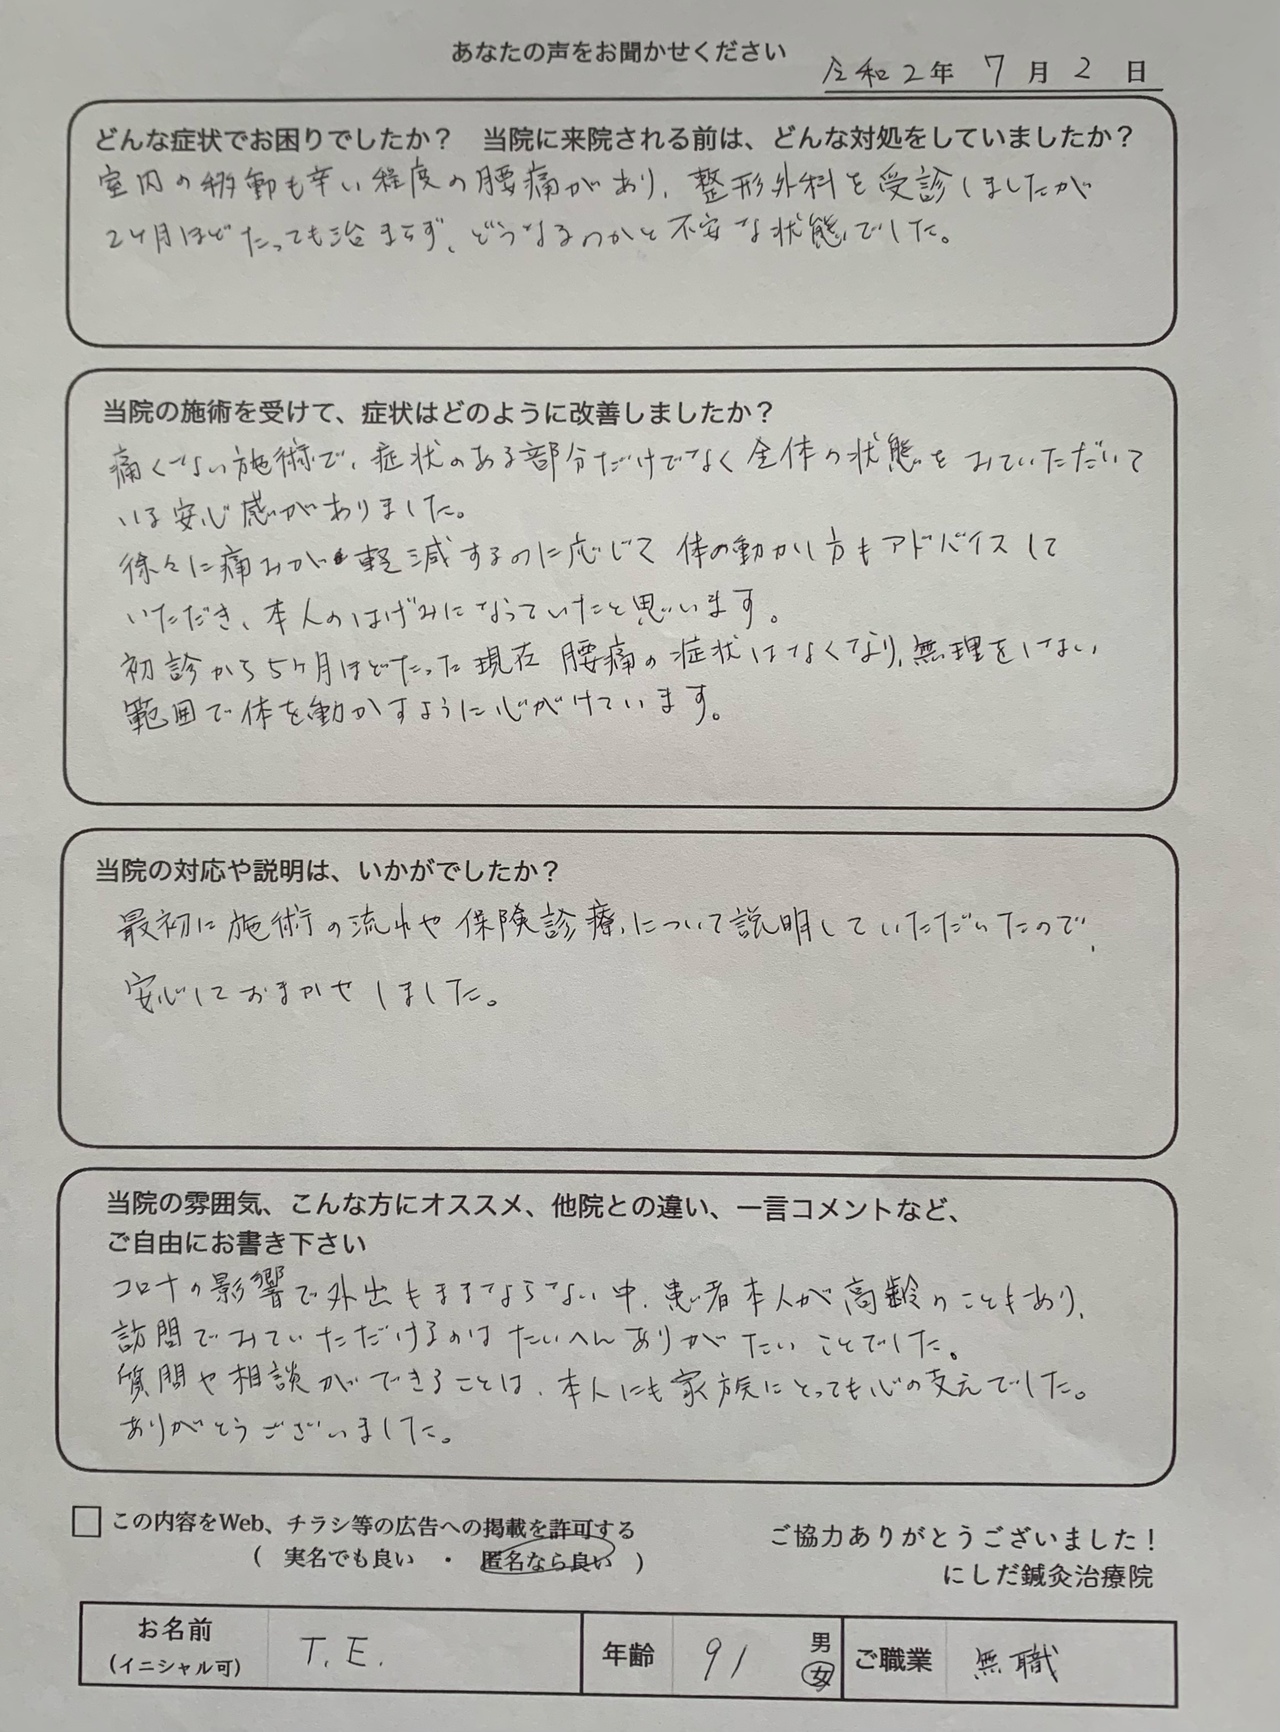 あなたの声をお聞かせください
令和2年 7月 2日
どんな症状でお困りでしたか？　当院に来院される前は、どんな対処をしていましたか？
室内の移動も辛い程度の腰痛があり、整形外科を受診しましたが
2ヶ月ほどたっても治まらず、どうなるのかと不安な状態でした。
当院の施術を受けて、症状はどのように改善しましたか？
痛くない施術で、症状のある部分だけでなく全体の状態をみていただいて
いる安心感がありました。
徐々に痛みが軽減するのに応じて体の動かし方もアドバイスして
いただき、本人のはげみになっていたと思います。
初診から5ヶ月ほどたった現在 腰痛の症状はなくなり、無理をしない
範囲で体を動かすように心がけています。
当院の対応や説明は、いかがでしたか？
最初に施術の流れや保険診療について説明していただいたので、
安心しておまかせしました。
当院の雰囲気、こんな方にオススメ、他院との違い、一言コメントなど、
ご自由にお書き下さい
コロナの影響で外出もままならない中、患者本人が高齢のこともあり、
訪問でみていただけるのはたいへんありがたいことでした。
質問や相談ができることは、本人にも家族にとっても心の支えでした。
ありがとうございました。
□ この内容をWeb、チラシ等の広告への掲載を許可する
（ 実名でも良い ・ 匿名なら良い ）
ご協力ありがとうございました！
にしだ鍼灸治療院
お名前
（イニシャル可）
T.E.
年齢
91
男
女
ご職業
無職